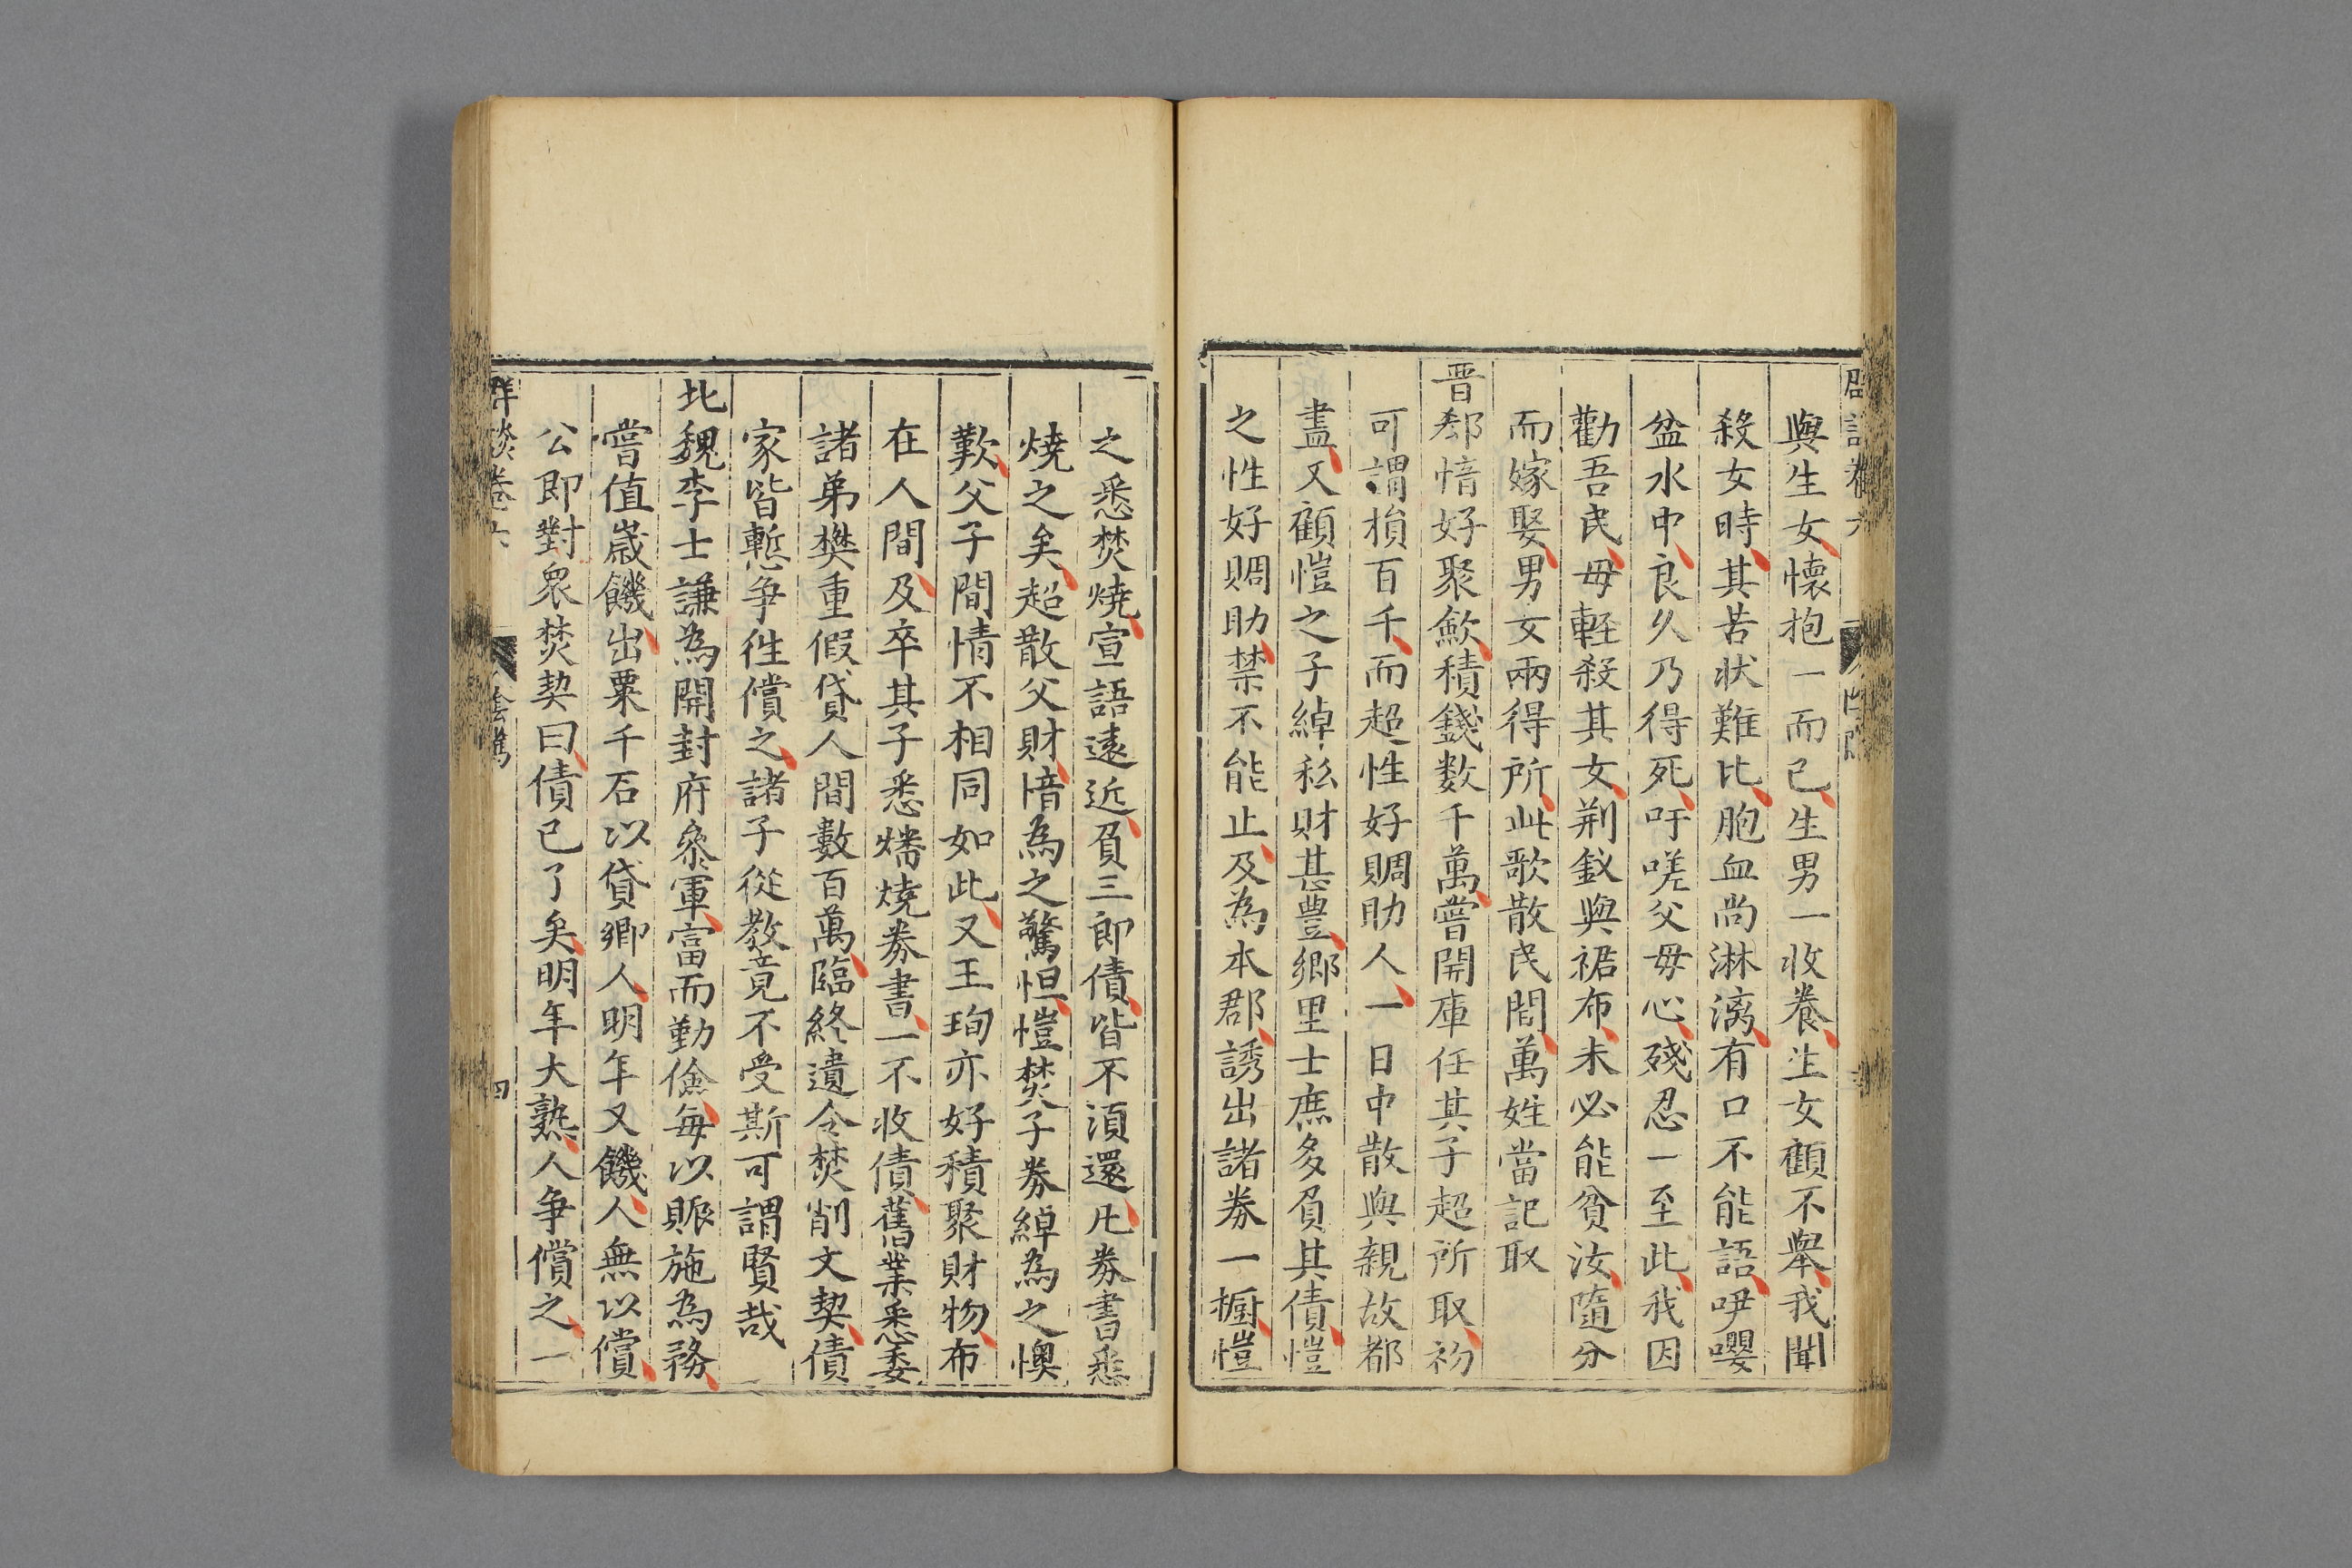 與生女懷抱一而已生男一收養生女顧不舉我聞
殺女時其苦狀難比胞血尚淋漓有口不能語咿嚶
盆水中良久乃得死吁嗟父母心殘忍一至此我因
勸吾民毋輕殺其女荆釵與裙布未必能貧汝隨分
而嫁娶男女兩得所此歌散民間萬姓當記取
晋郄愔好聚歛積錢数千萬嘗開庫任其子超所取初
可謂損百千而超性好賙助人一日中散與親故都
盡又顧愷之子綽私財甚豊鄉里士庶多負其債愷
之性好賙助禁不能止及為本郡誘出諸券一橱愷
之悉焚燒宣語遠近負三郎債皆不須還凡券書悉
燒之矣超散父財愔為之驚怛愷焚子券綽為之懊
歎父子間情不相同如此又王珣亦好積聚財物布
在人間及卒其子悉燔燒券書一不收債舊業悉委
諸弟樊重假貸人間數百萬臨終遺令焚削文契債
家皆慙争徃償之諸子從教竟不受斯可謂賢哉
北魏李士謙為開封府叅軍富而勤儉每以賑施為務
嘗值嵗饑出粟千石以貸鄉人明年又饑人無以償
公即對衆焚契曰債已了矣明年大熟人争償之一
群談卷六 陰隲 四